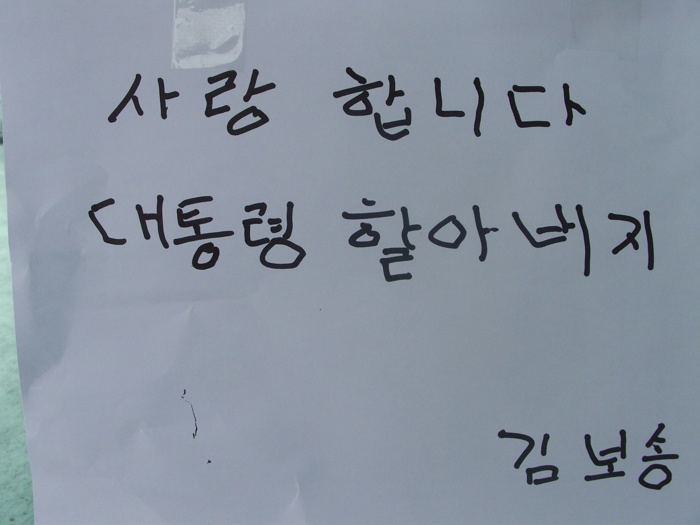 사랑 합니다
대통령 할아버지
김보송